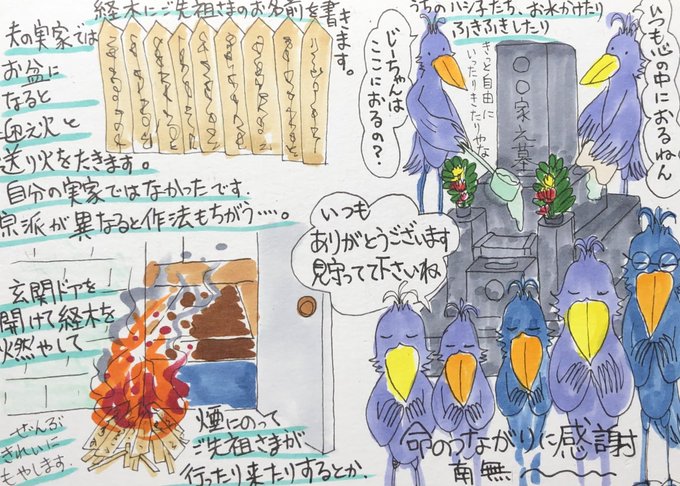 経木にご先祖さまのお名前を書き
ます。
夫の実家では
お盆に
なると
迎え火と
送り火をたきます。
自分の実家ではなかったです.
宗派が異なると作法もちがう‥‥。
玄関ドアを
開けて経木を
燃やして
ぜんぶ
きれいに
もやします.
煙にのって
ご先祖さまが
行ったり来たりするとか.
うちのハシ子たち、お水かけたり
ふきふきしたり
じいちゃんは
ここにおるの?
きっと自由に
いったりきたりやな
いつも心の中におるねん
〇〇家之墓
いつも
ありがとうございます
見守ってて下さいね
命のつながりに感謝
南無